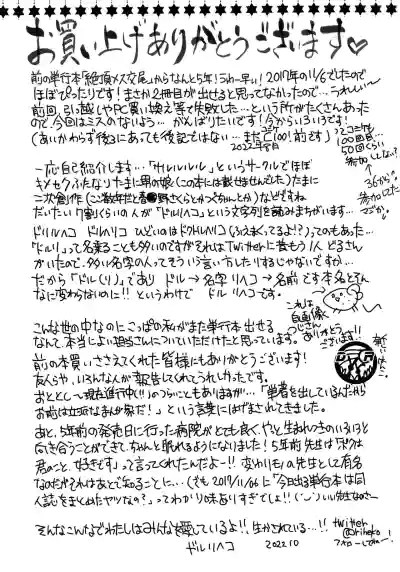 お買い上げありがとうございます♡
前の単行本「絶頂メス交尾」からなんと5年！うわー早い！2017年の11/6でしたので
ほぼぴったりです！まさか2冊目が出せると思ってなかったので…うれしい〜
前回、引っ越しやPC買い換え等で失敗した…という所がたくさんあった
ので、今回はミスのないよう… がんばりたいです！今からいろいろです！
(あいかわらず後ろにあって後記ではない…まだC100！前です)
2022年8月
コミケ
100回目…
50回くらい
参加してない？
36から？
参加してた
マジか。
一応自己紹介します…「サルルルル」というサークルでほぼ
キメセクふたなりたまに男の娘(この本には載せませんでした)たまに
二次創作
だいたい7割くらいの人が「ドルリヘコ」という文字列を読みまちがいます…
ドリルヘコ ドリルヘコ ひどいのは
「ドルリ」って名乗ることも多いのですがそれはTwitterに昔もう1人どるさん
がいたので、多い名字の人ってそういう言い方したりするじゃないですか…
だから「ドル(リ)」であり ドル→名字 リヘコ→名前です本名とそん
なに変わらないのに!!というわけで ドルリヘコです。
これは
自画像
こんな世の中なのにこっぱの私がまた単行本出せる
なんて、本当によい担当さんについていただけたと思っています。
ありがとう
ございます…
前の本買いささえてくれた皆様にもありがとうございます！
友人らや、いろんな人が報告してくれてうれしかったです。
おととし〜現在進行中(!!)のつらいこともありますが…「単著を出しているんだから
お前は立派なまんが家だ！」という言葉にはげまされてきました。
あと、5年前の発売日に行った病院がとても良く、やっと生まれつきのいろいろと
向き合うことができて、ちゃんと眠れるようになりました！5年前先生は「ボクは
君のこと、好きです」って言ってくれたんだよー!!
なのだがそれはあとで知ることに…(そも2017/11/06に「今日出る単行本は同
人誌をまとめたヤツなの？」ってわかり味ありすぎでしょ!!
そんなこんなでわたしはみんなを愛しているよ!! 生かされている…!!
twitter
@riheko
フォローしてねー！
ドルリヘコ 2022.10